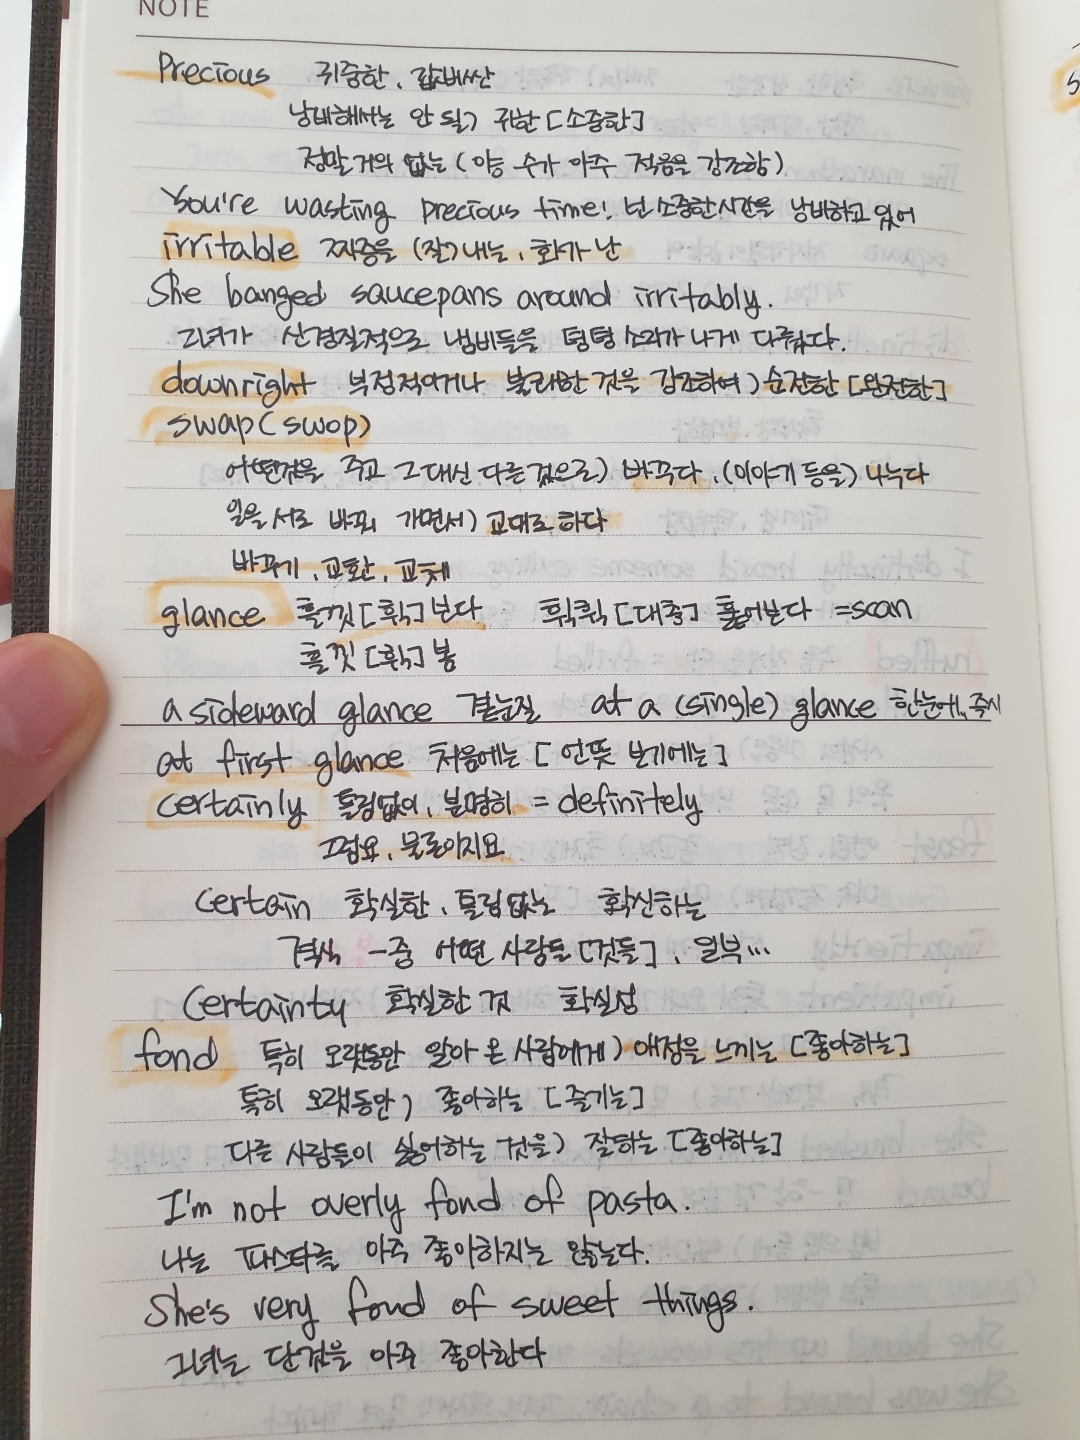 NOTE
Precious 귀중한, 값비싼
낭비해서는 안 될) 귀한 [소중한]
정말 거의 없는 (양 수가 아주 적음을 강조함)
You're wasting precious time! 넌 소중한 시간을 낭비하고 있어
irritable 짜증을 (잘) 내는, 화가 난
She banged saucepans around irritably.
그녀가 신경질적으로 냄비들을 텅텅 소리가 나게 다뤘다.
downright 부정적이거나 불쾌한 것을 강조하여) 순전한 [완전한]
swap (swop)
어떤것을 주고 그 대신 다른 것으로) 바꾸다, (이야기 등을) 나누다
일을 서로 바꿔 가면서) 교대로 하다
바꾸기, 교환, 교체
glance 흘깃 [휙] 보다 휙휙 [대충] 훑어보다 =scan
흘깃 [휙] 봄
a sideward glance 곁눈질 at a (single) glance 한눈에, 즉시
at first glance 처음에는 [언뜻 보기에는]
certainly 틀림없이, 분명히 = definitely
그럼요, 물론이지요
certain 확실한, 틀림없는 확신하는
격식 -중 어떤 사람들 [것들], 일부...
Certainty 확실한 것 확실성
fond 특히 오랫동안 알아 온 사람에게) 애정을 느끼는 [좋아하는]
특히 오랫동안) 좋아하는 [즐기는]
다른 사람들이 싫어하는 것을) 잘하는 [좋아하는]
I'm not overly fond of pasta.
나는 파스타를 아주 좋아하지는 않는다.
She's very fond of sweet things.
그녀는 단것을 아주 좋아한다